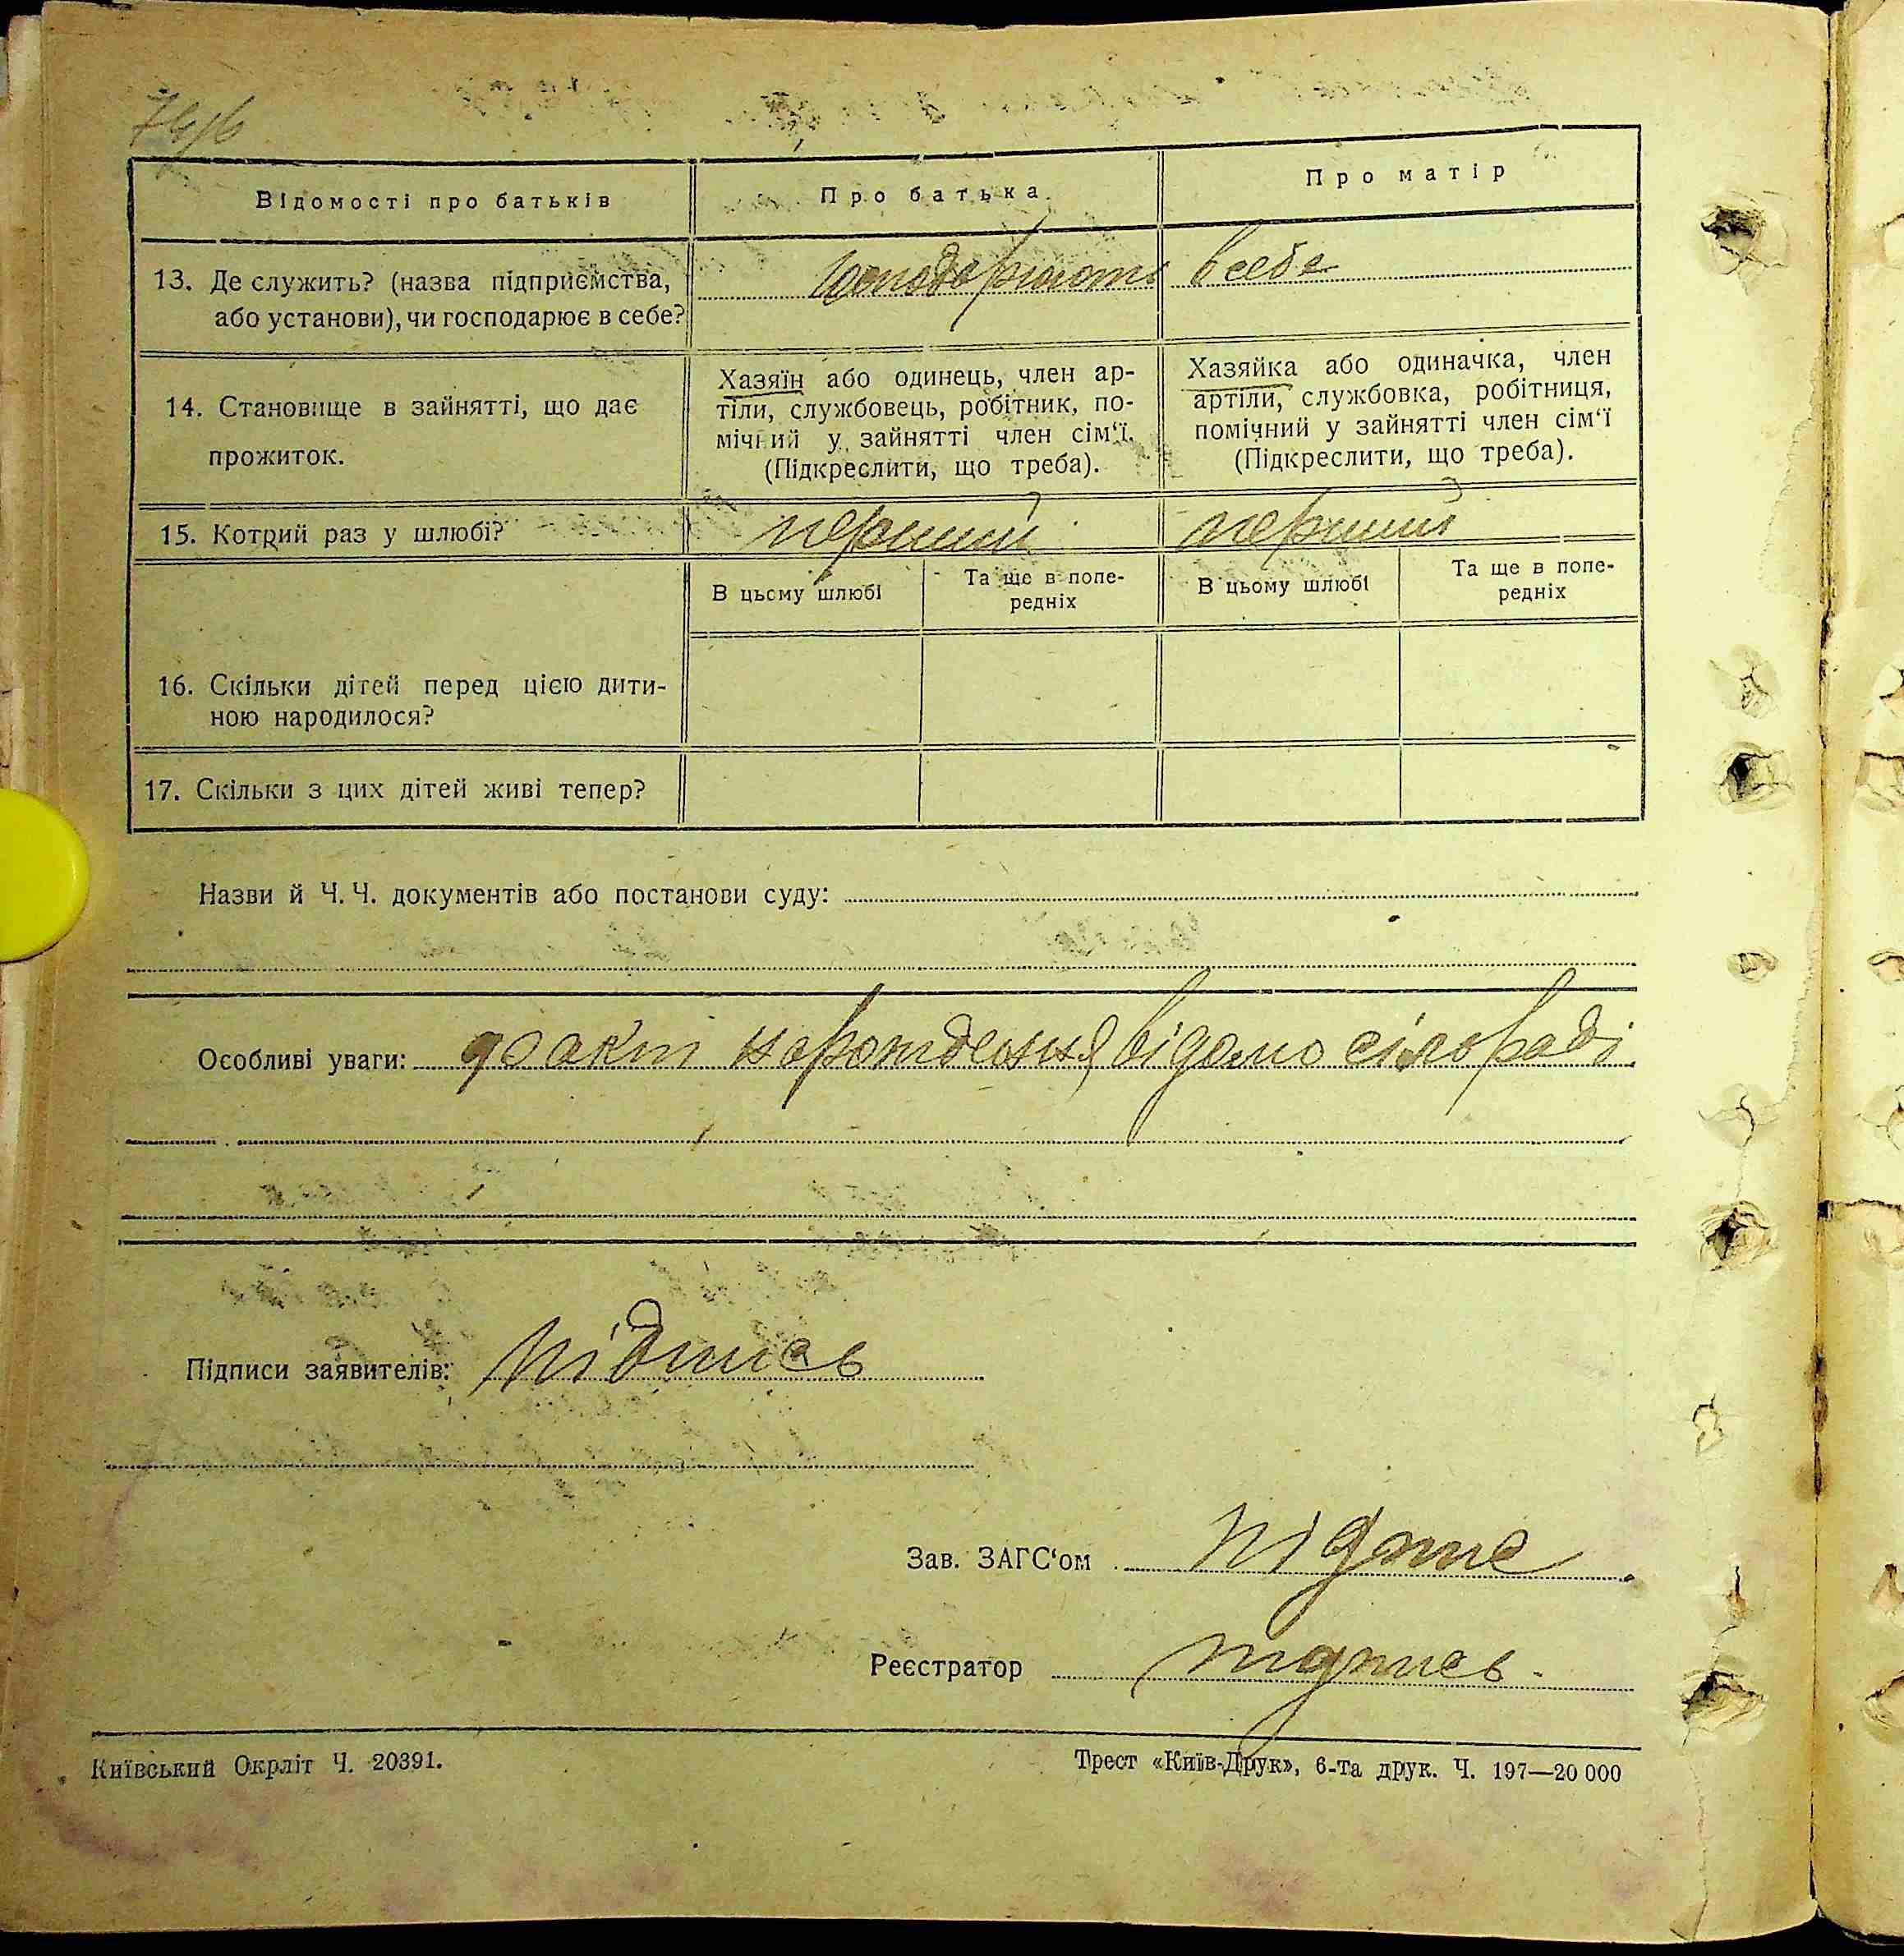 Відомості про батьків
Про батька
Про матір
13. Де служить? (назва підприємства,
або установи), чи господарює в себе?
господарюють в себе
14. Становище в зайнятті, що дає
прожиток.
Хазяїн або одинець, член ар-
тіли, службовець, робітник, по-
мічний у зайнятті член сім‘ї.
(Підкреслити, що треба).
Хазяйка або одиначка, член
артіли, службовка, робітниця,
помічний у зайнятті член сім‘ї
(Підкреслити, що треба).
15. Котрий раз у шлюбі?
перший
перший
В цьому шлюбі
Та ще в попе-
редніх
В цьому шлюбі
Та ще в попе-
редніх
16. Скільки дітей перед цією дити-
ною народилося?
17. Скільки з цих дітей живі тепер?
Назви й Ч. Ч. документів або постанови суду:
Особливі уваги: факт народження відомо сілораді
Підписи заявителів: підпись
Зав. ЗАГС‘ом підпис
Реєстратор підпись.
Київський Окрліт Ч. 20391.
Трест «Київ-Друк», 6-та друк. Ч. 197—20 000